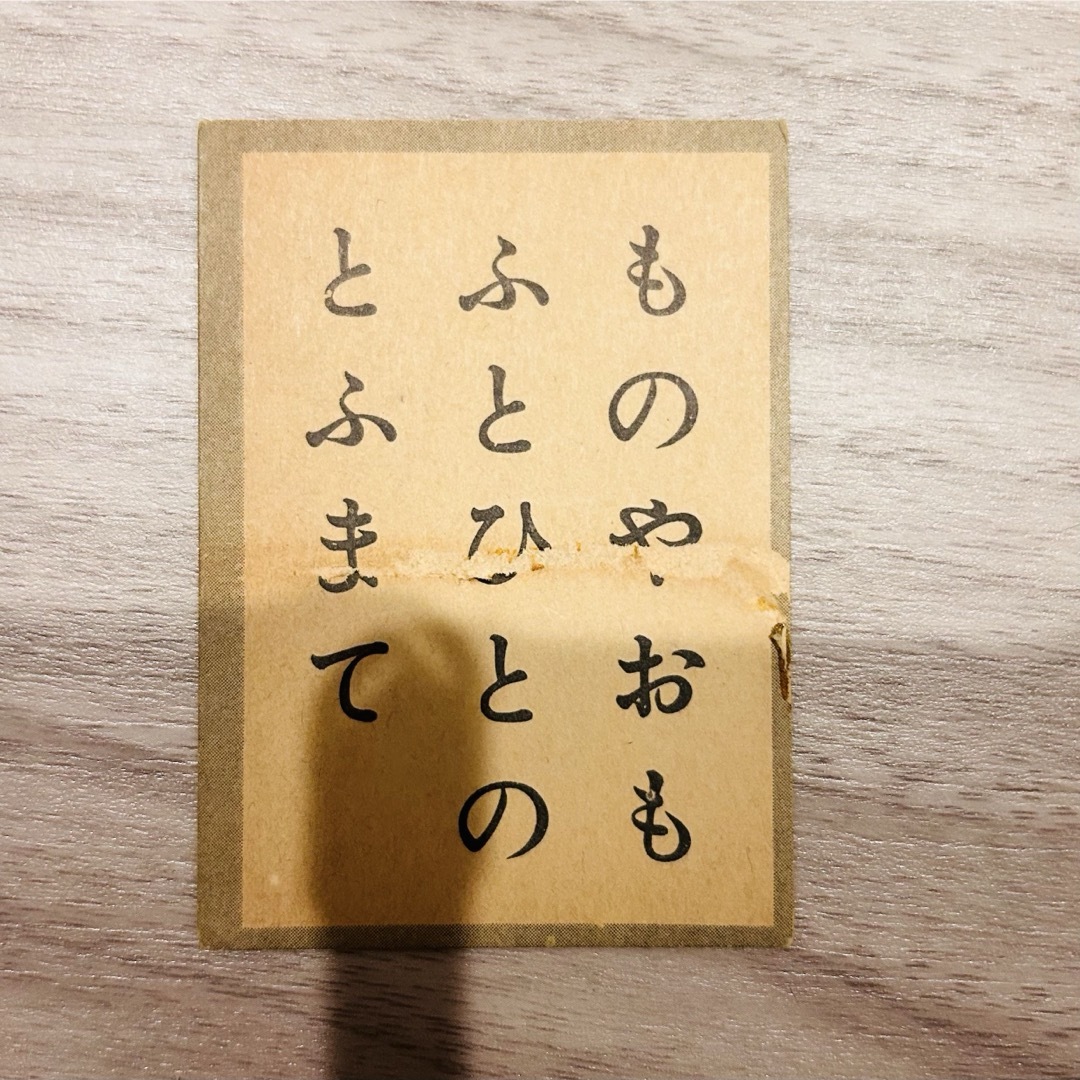 ものやおも
ふとひとの
とふまて